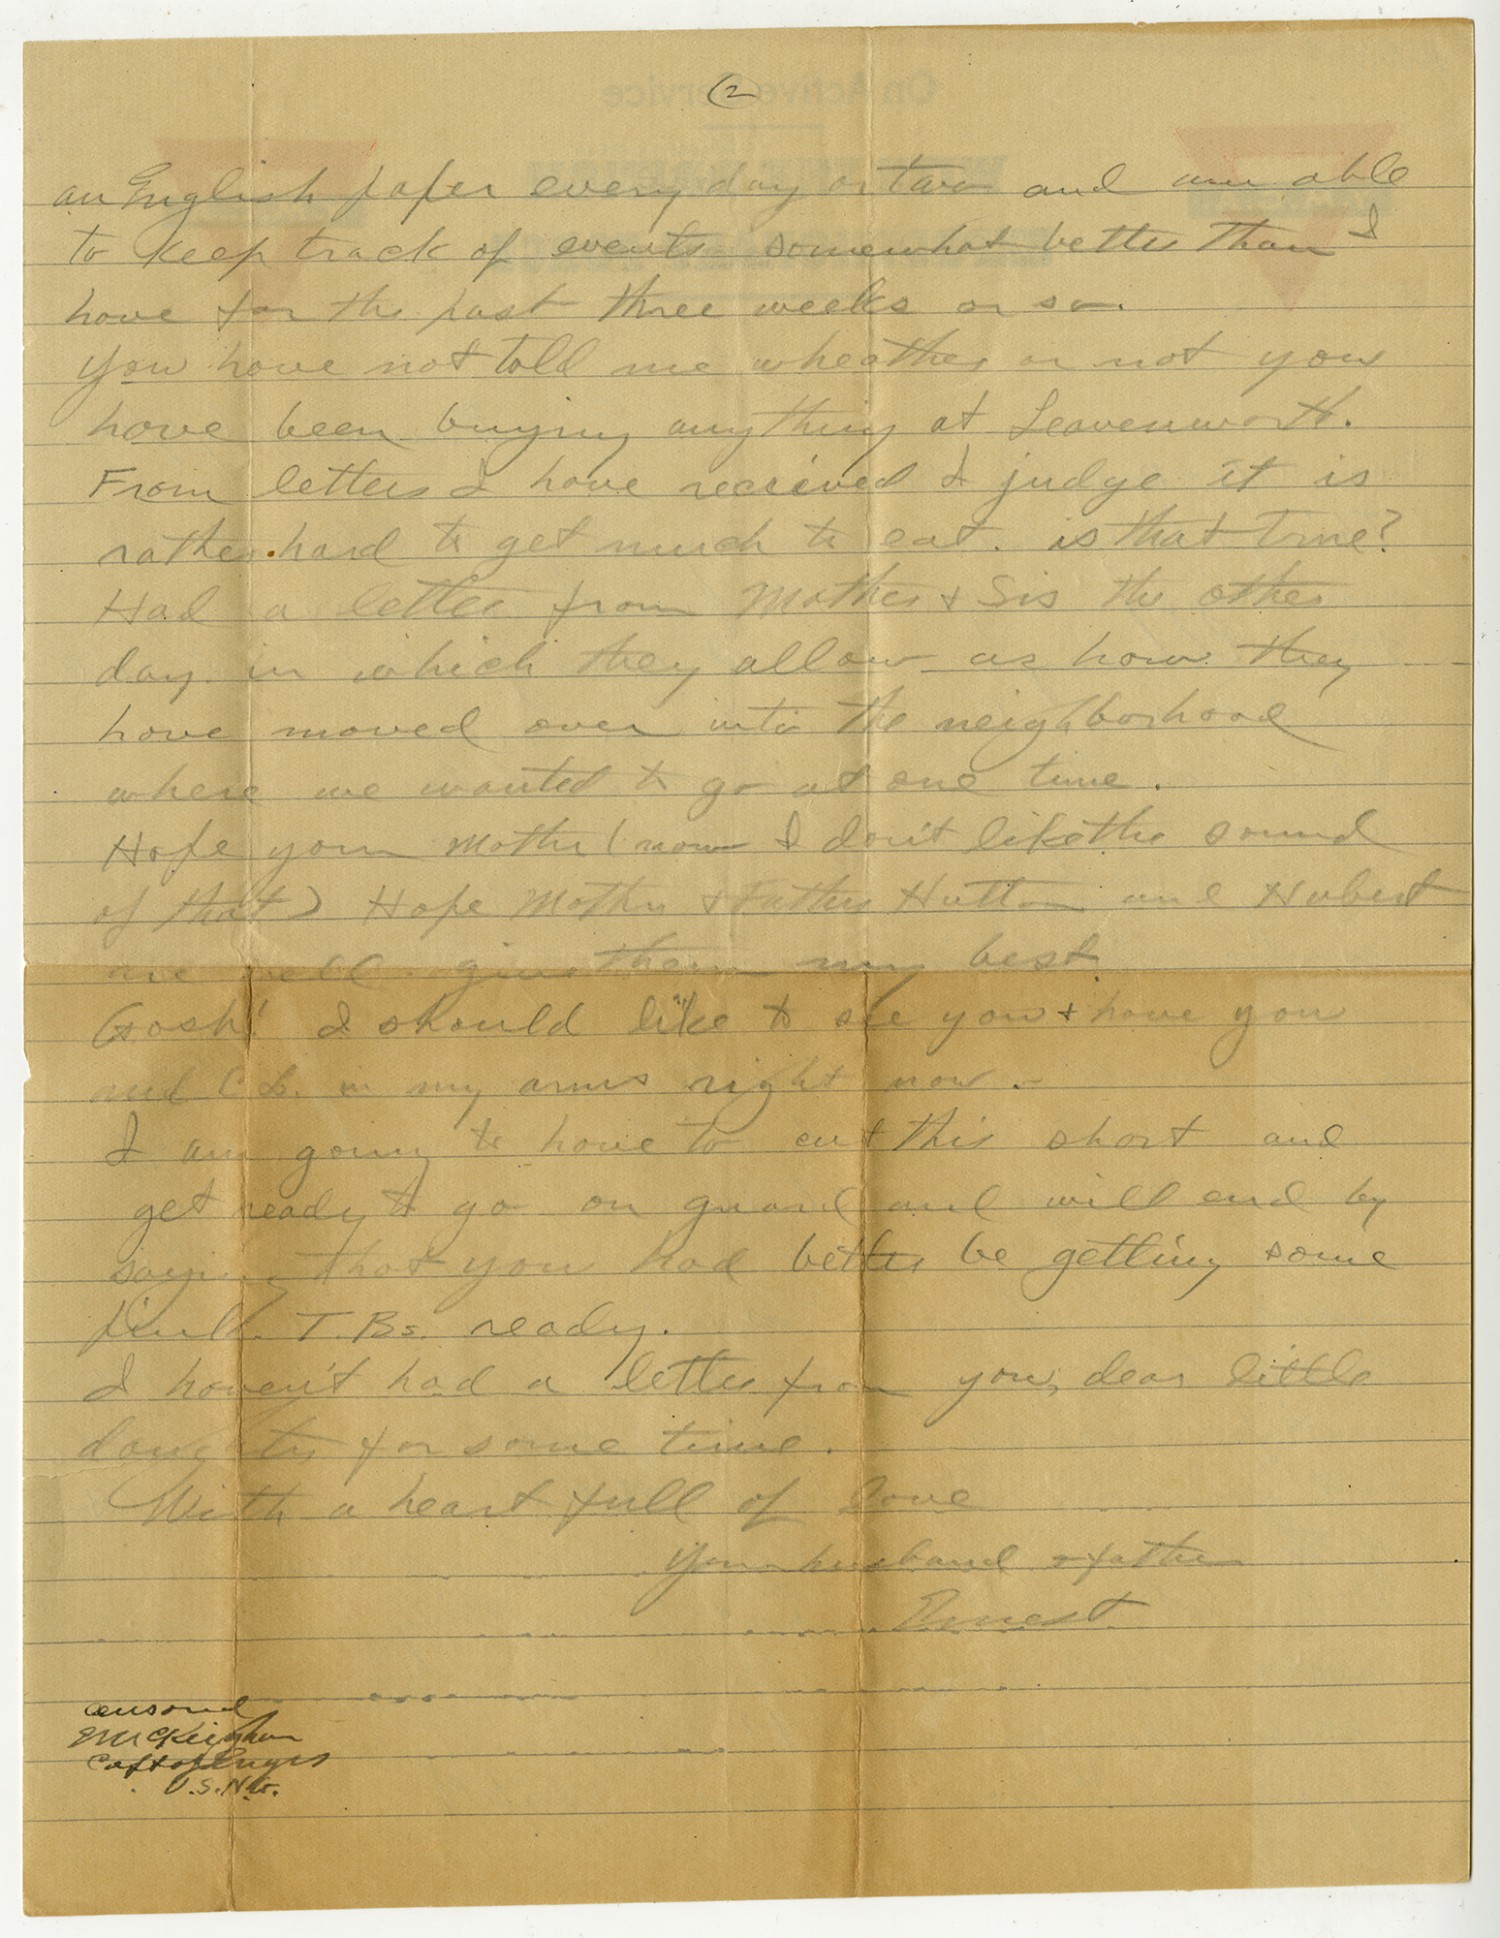 (2
On Active Service
an English paper every day or two and am able
to keep track of events somewhat better than I
have for the past three weeks or so.
You have not told me wheather or not you
have been buying anything at Leavenworth.
From letters I have recieved I judge it is
rather hard to get much to eat. is that true?
Had a letter from Mother & Sis the other
day in which they allow as how they
have moved over into the neighborhood
where we wanted to go at one time.
Hope your Mother (now I don't like the sound
of that) Hope Mother & Father Hutton and Hubert
are well. give them my best
Gosh! I should like to see you & have you
and C L. in my arms right now.
I am going to have to cut this short and
get ready to go on guard and will end by
saying that you had better be getting some
pink T.Bs. ready.
I haven't had a letter from you, dear little
daughter for some time.
With a heart full of love
Your husband & father
Ernest
censored
Capt of Engrs
U.S.N.G.